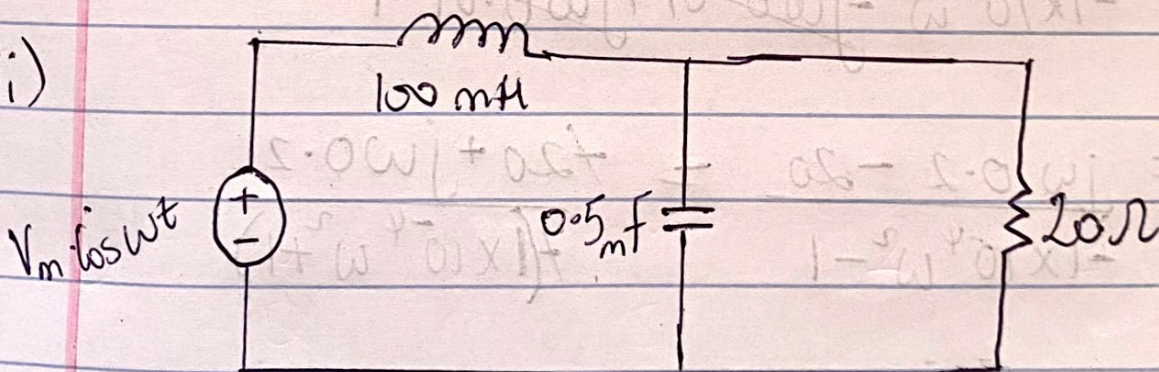 i)
100 mH
Vm Cosωt
+
−
0.5mF
20Ω